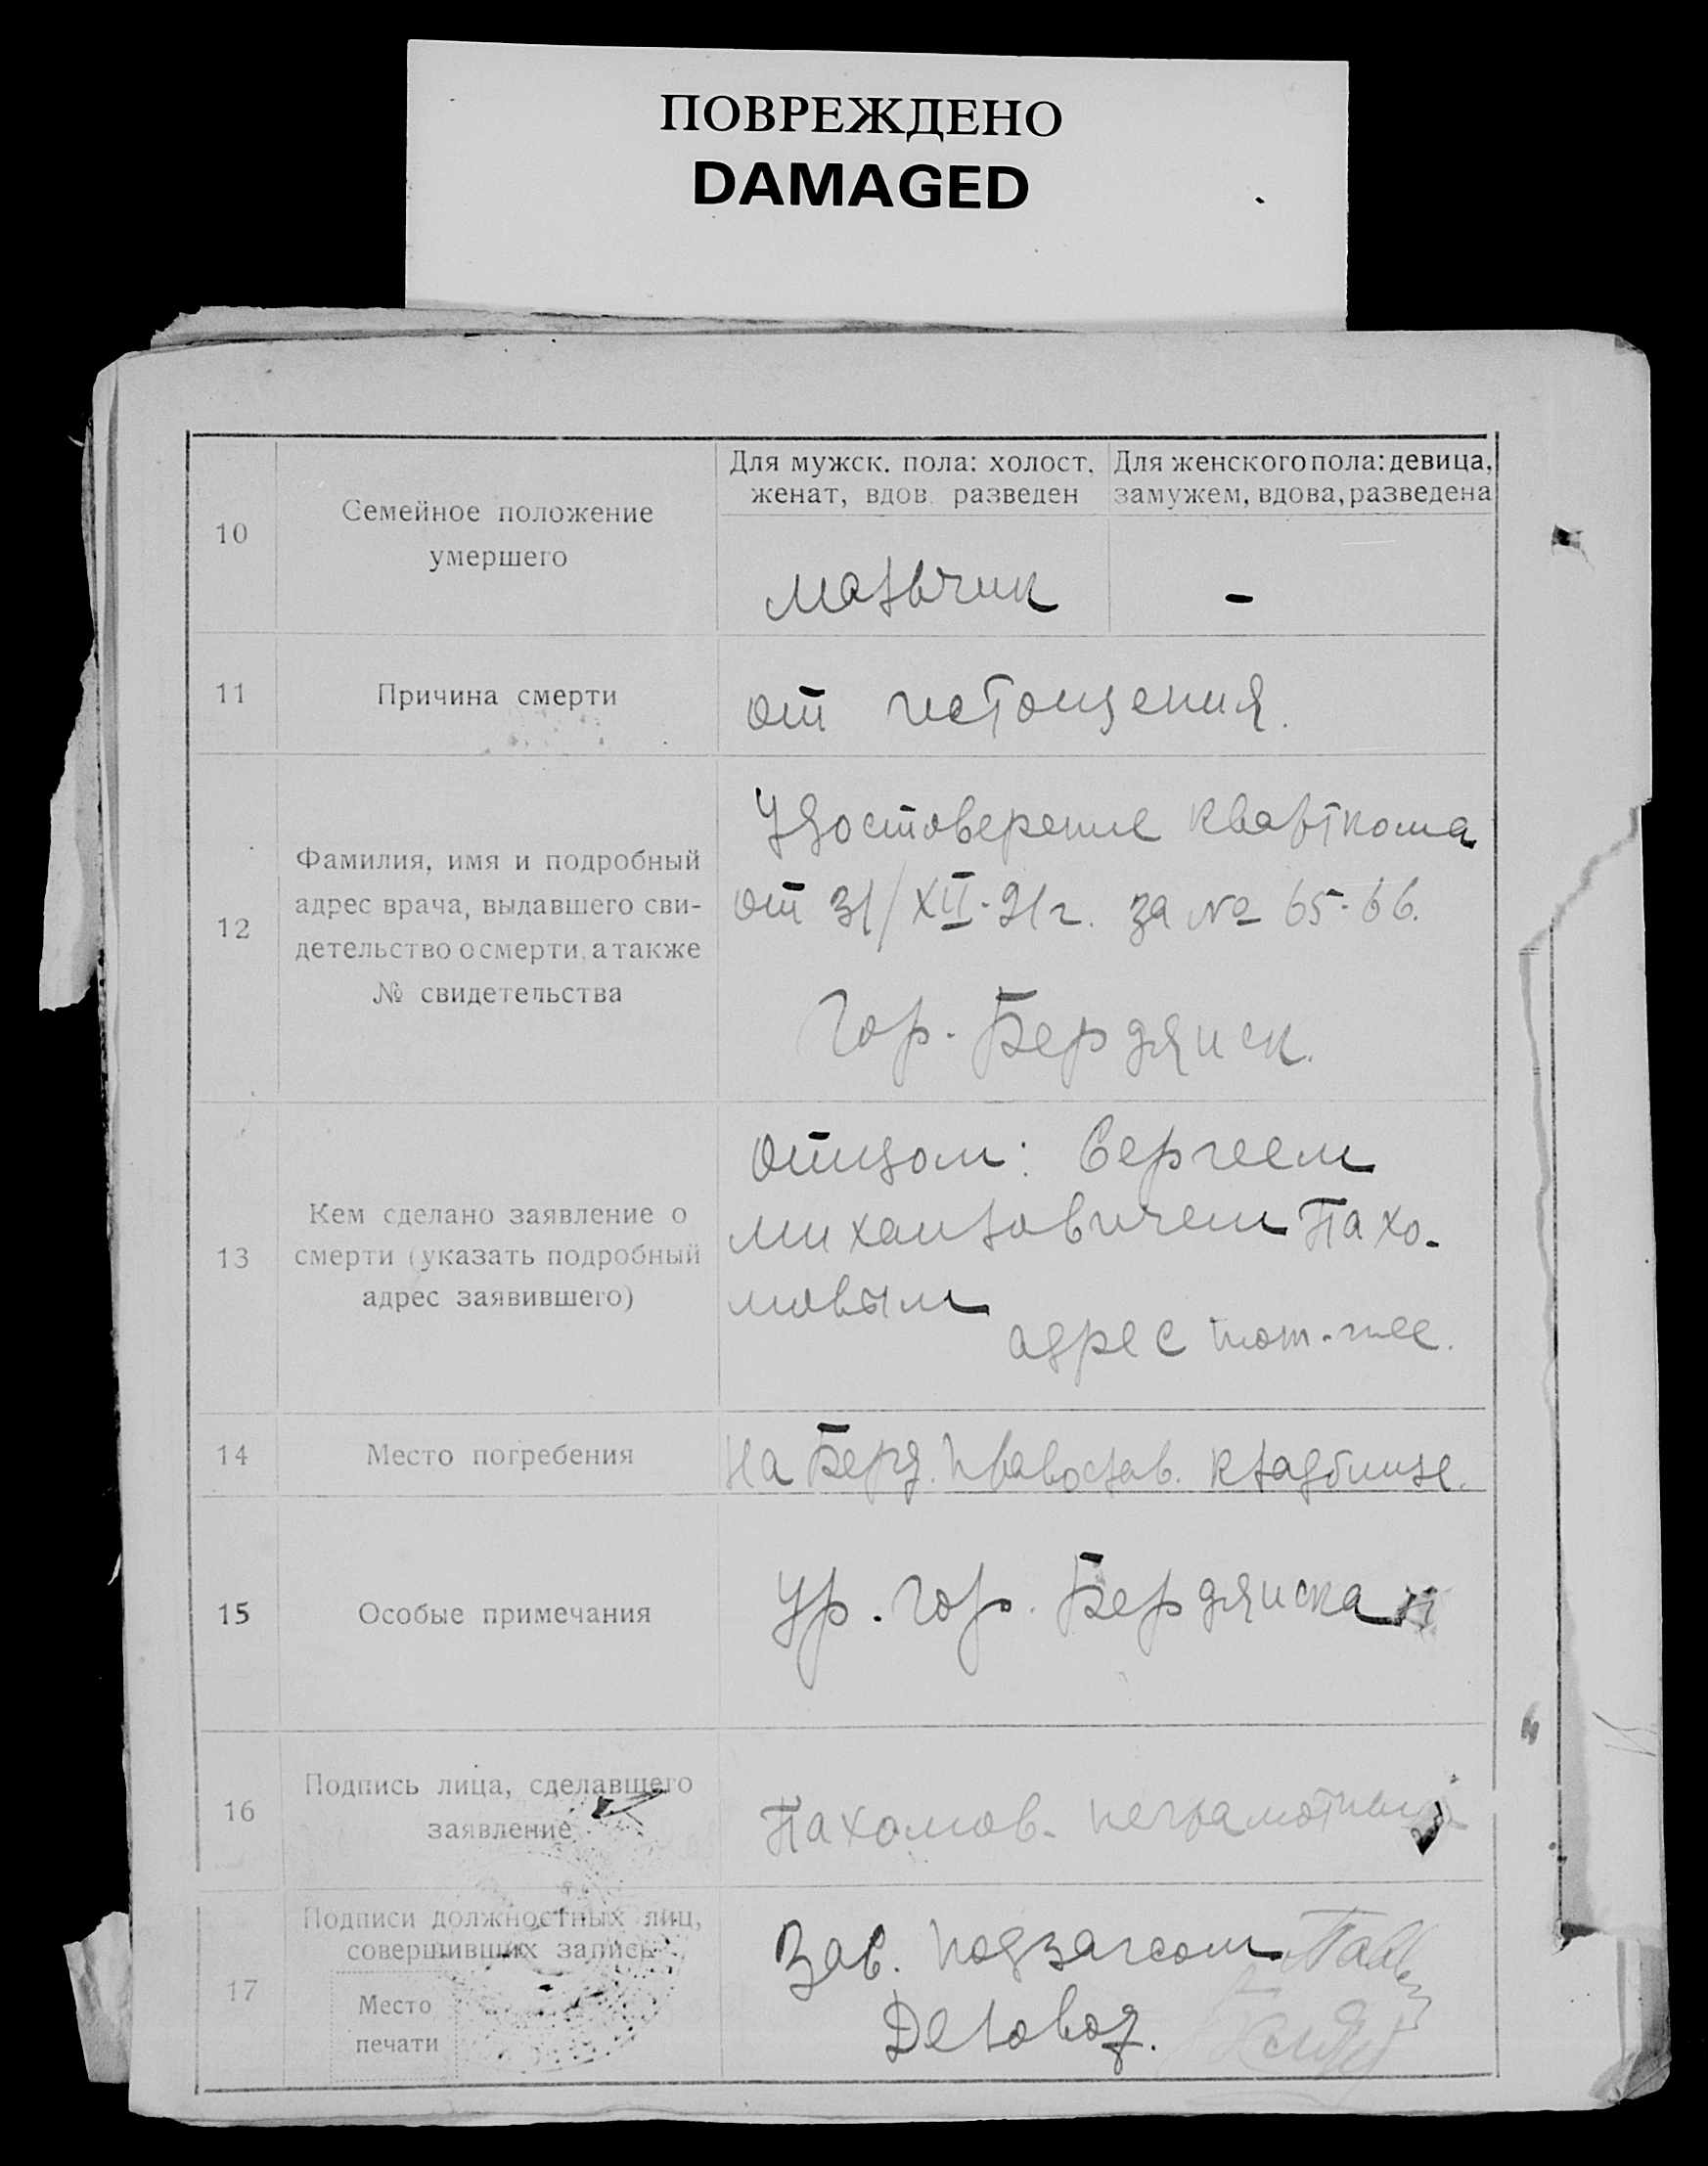 ПОВРЕЖДЕНО
DAMAGED
10
Семейное положение
умершего
Для мужск. пола: холост,
женат, вдов. разведен
Для женского пола: девица,
замужем, вдова, разведена
мальчик
-
11
Причина смерти
от истощения.
12
Фамилия, имя и подробный
адрес врача, выдавшего сви-
детельство о смерти, а также
№ свидетельства
Удостоверение кварткома
от 31/XII-21г. за № 65-66.
Гор. Бердянск.
13
Кем сделано заявление о
смерти (указать подробный
адрес заявившего)
Отцом: Сергеем
Михайловичем Пахо-
мовым
адрес тот-же.
14
Место погребения
На Берд. Православ. кладбище.
15
Особые примечания
Ур. гор. Бердянска
16
Подпись лица, сделавщего
заявление
Пахомов - неграмотный
17
Подписи должностных лиц,
совершивших запись
Место
печати
Зав. подзагсом
Деловод.